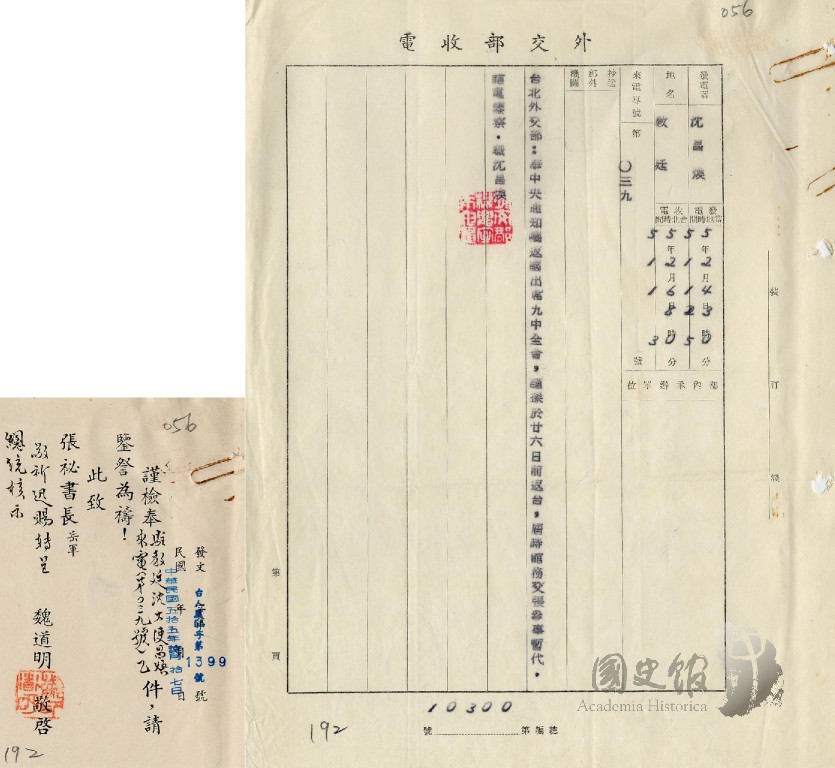 056
外交部收電
發電者 沈昌煥
地名 教廷
來電專號 第〇三九號
抄送部外機關
發電當地時間 55年12月14日23時50分
收電台北時間 55年12月16日8時30分
部內承辦單位
台北外交部:奉中央通知囑返國出席九中全會,職擬於廿六日前返台,屆時館務交張參事暫代。
謹電鑒察。職沈昌煥
裝 訂 線
第 頁
總編第 10300 號
192
國史館
Academia Historica
056
發文 字第1399號
民國 年 月 日
中華民國五拾五年 拾七日
謹檢奉駐教廷沈大使昌煥
來電(第〇三九號)乙件,請
鑒詧為禱!
此致
張祕書長岳軍
敬祈迅賜轉呈
總統核示
魏道明 敬啓
192